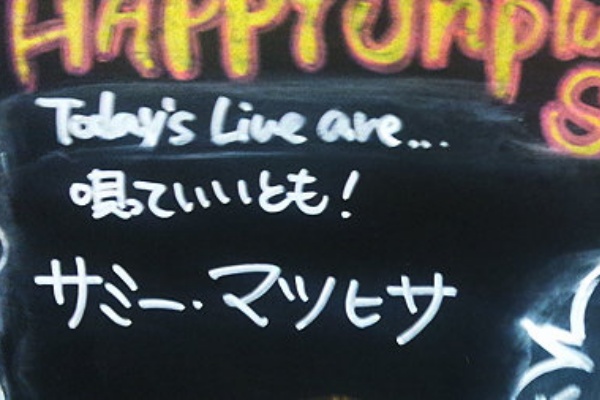 HAPPY Unplu
S
Today's Live are...
唄っていいとも!
サミー・マツヒサ